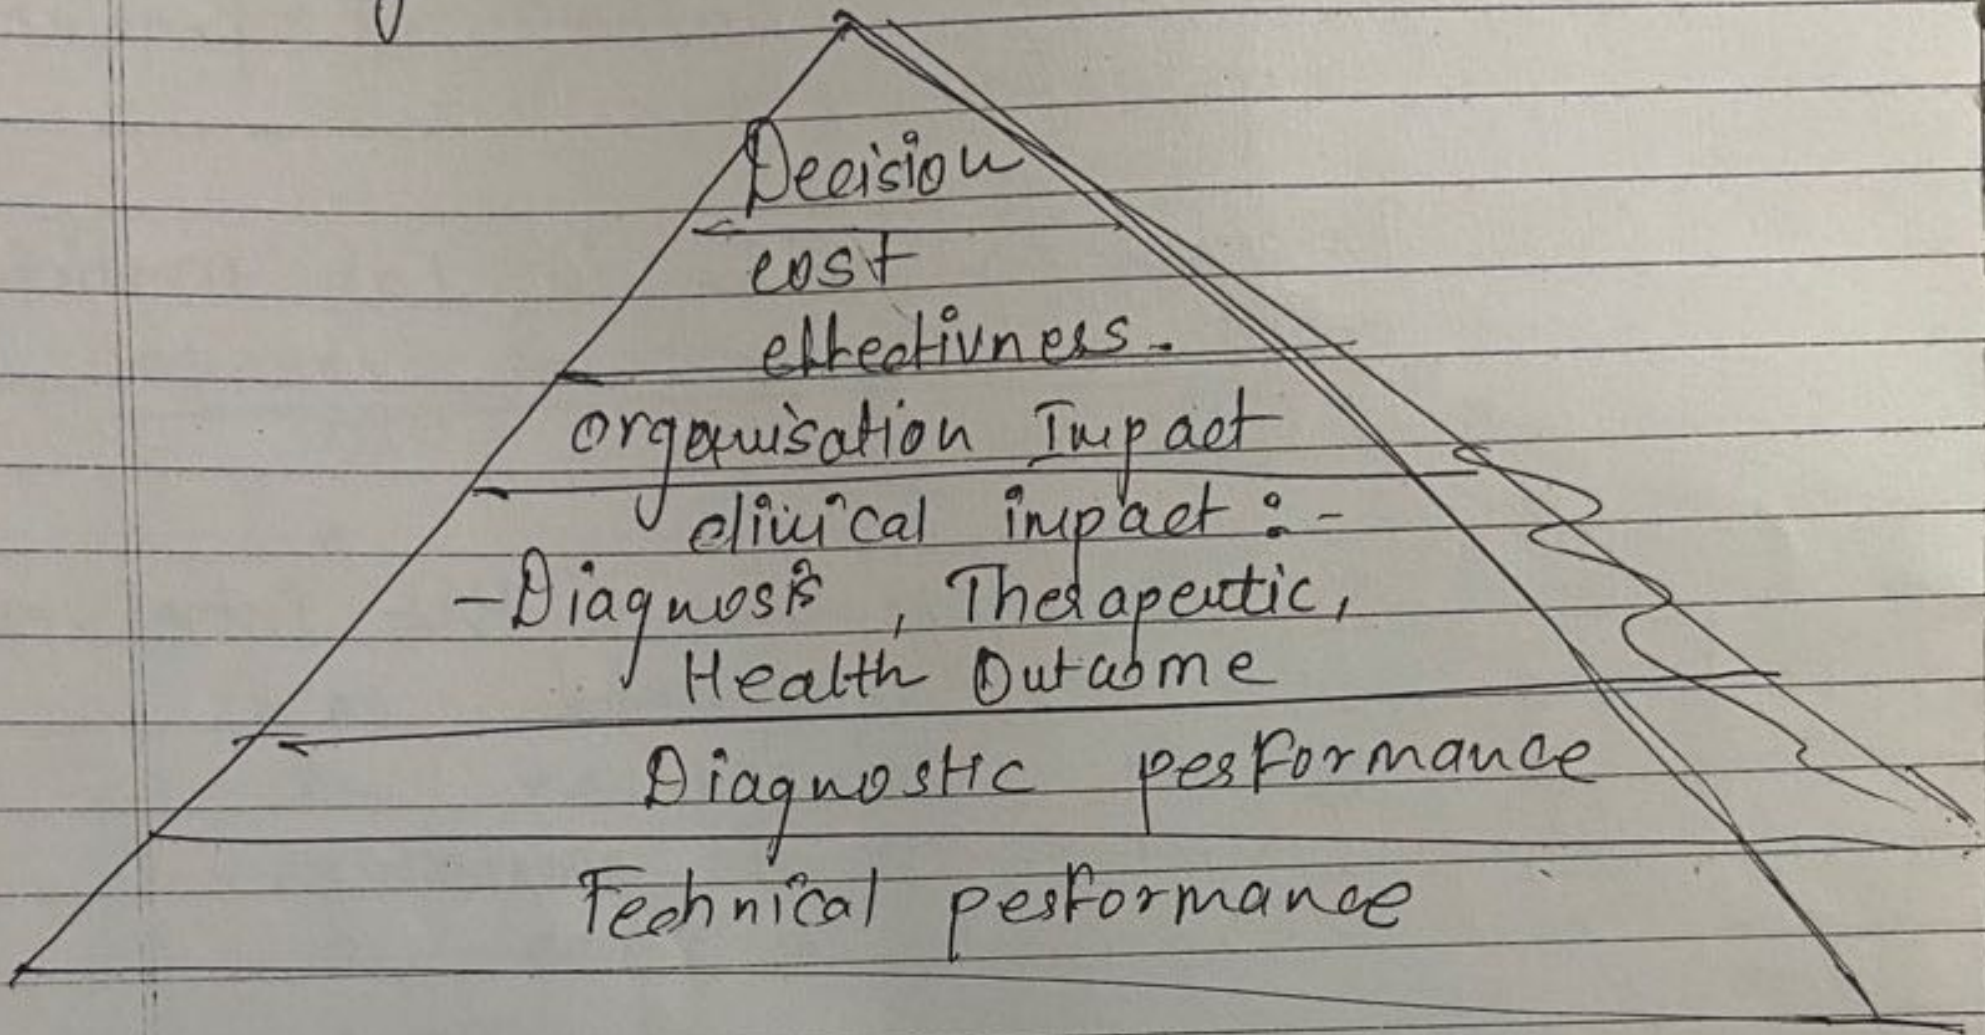 Decision
cost
effectivness.
Organisation Impact
clinical impact :-
- Diagnosis, Therapeutic,
Health Outcome
Diagnostic performance
Technical performance